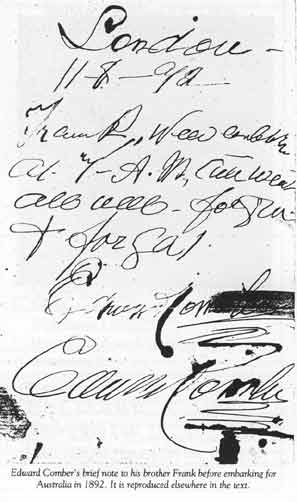 London -
11-8-92
Frank, Weel embark
at 7-A.M.
all well - forgive
+ forget
Edward Comber
Edward Comber
Edward Comber's brief note to his brother Frank before embarking for
Australia in 1892. It is reproduced elsewhere in the text.